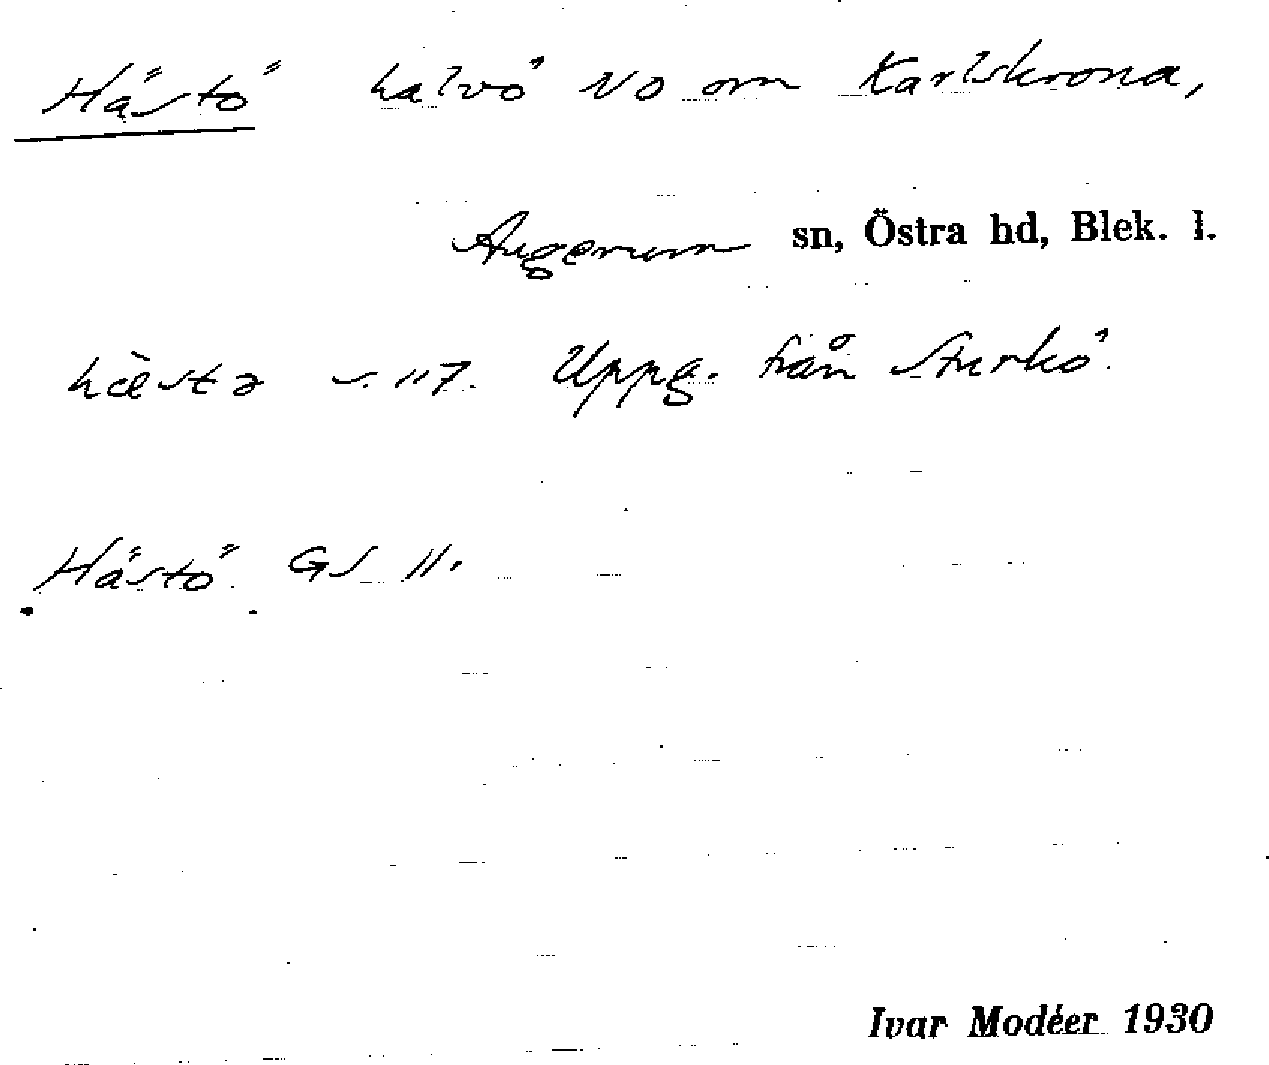 Hästö halvö NO om Karlskrona,
Augerum sn, Östra hd, Blek. l.
hὰsta s. 117. Uppg. från Sturkö.
Hästö GS 11.
Ivar Modéer 1930